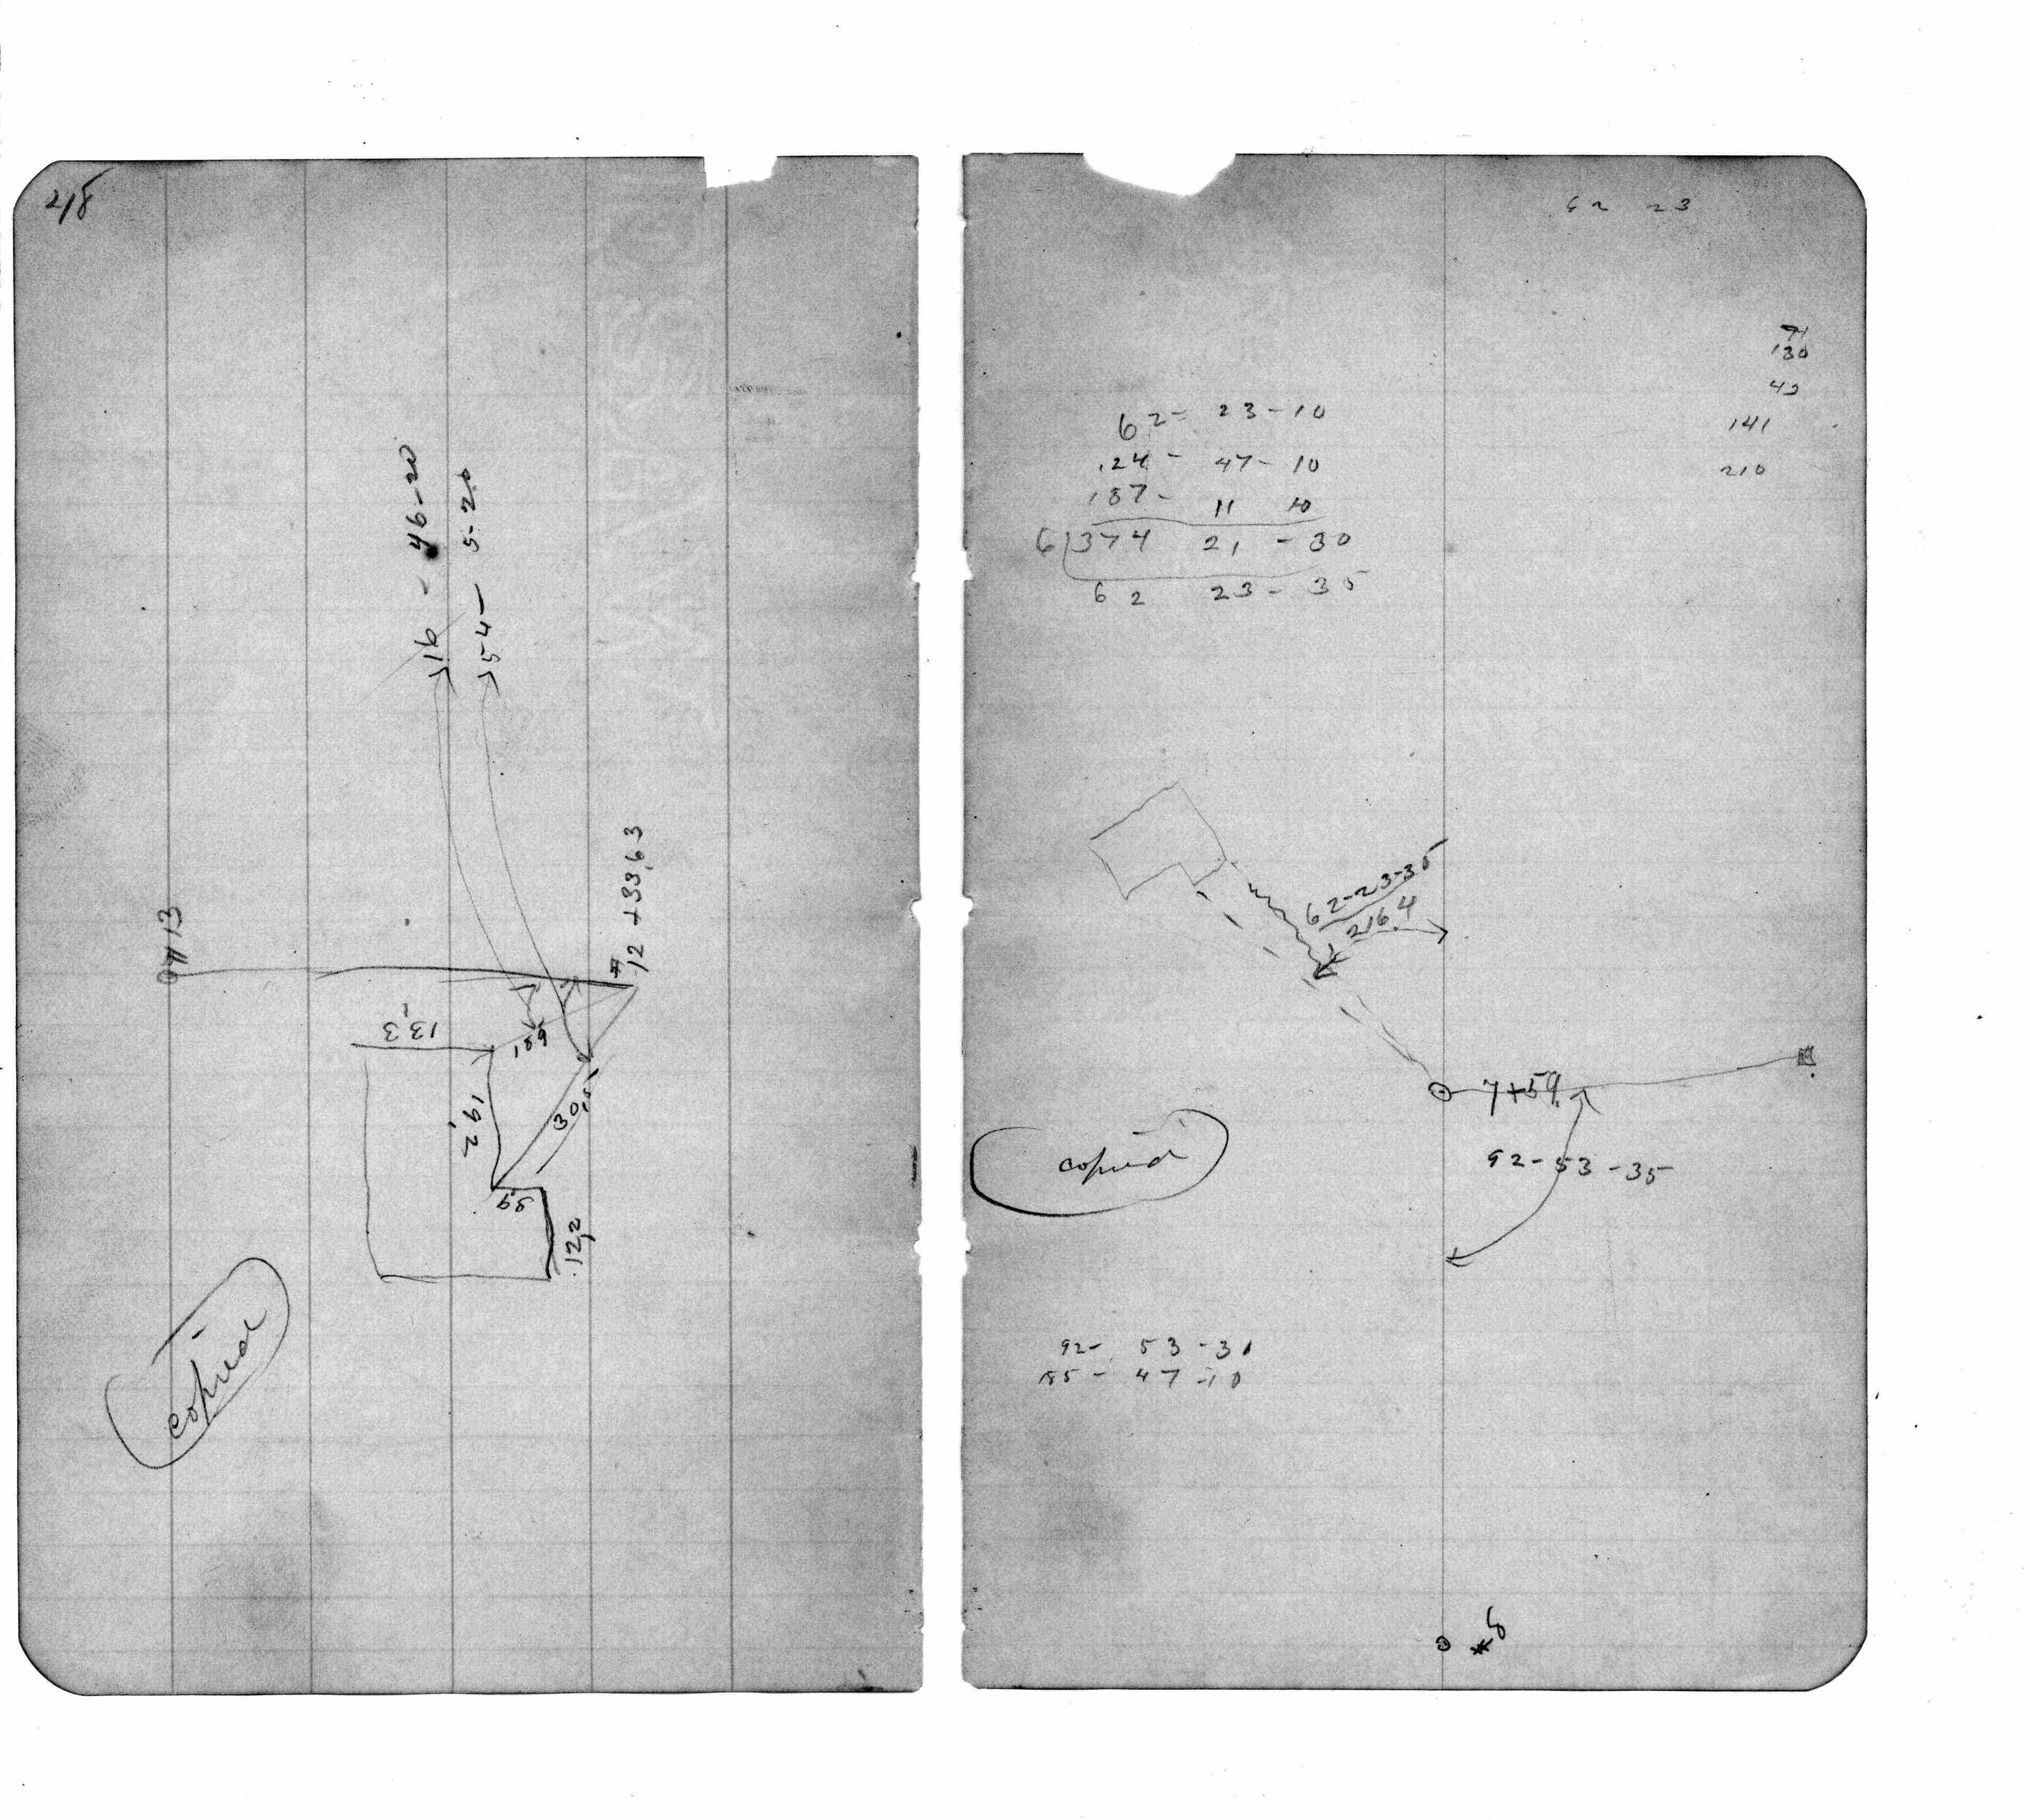 218
16 - 46-20
54 - 5-20
#13
12+33,63
13,3
15,9
19,2
30,5
12,2
copied
62 23
71
130
43
141
210
62- 23-10
124- 47-10
187- 11 10
6)374 21 - 30
62 23- 35
62-23-35
216.4
7+59.
92-53-35
copied
92- 53-30
185- 47-10
#8